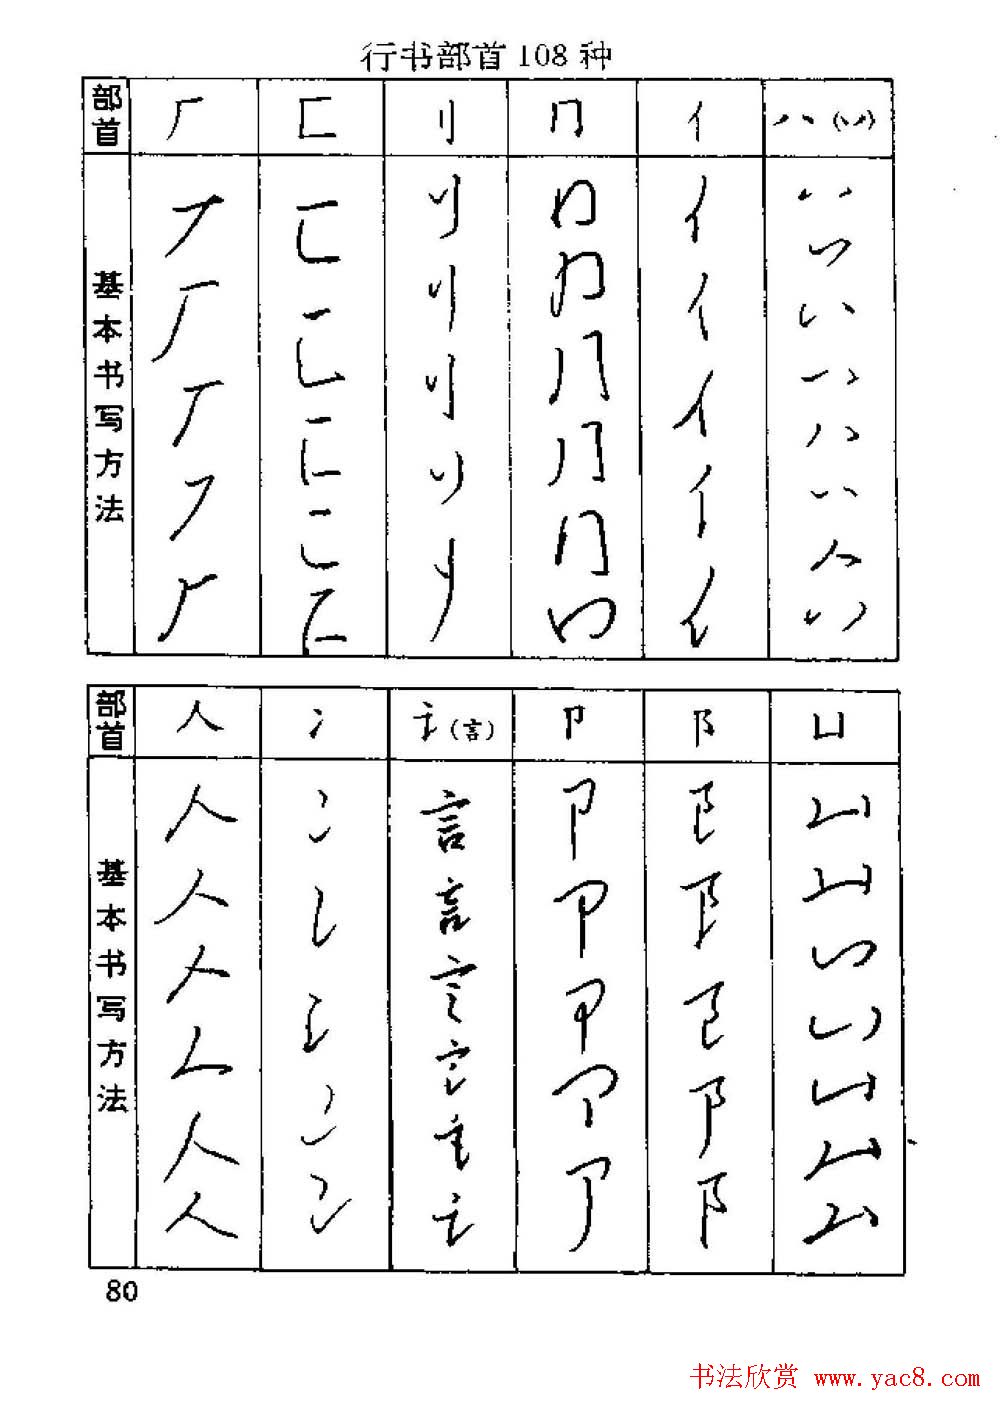 行书部首108种
部首 厂 匚 刂 冂 亻 八(丷)
基本书写方法
部首 人 冫 讠(言) 卩 阝 凵
基本书写方法
80
书法欣赏 www.yac8.com